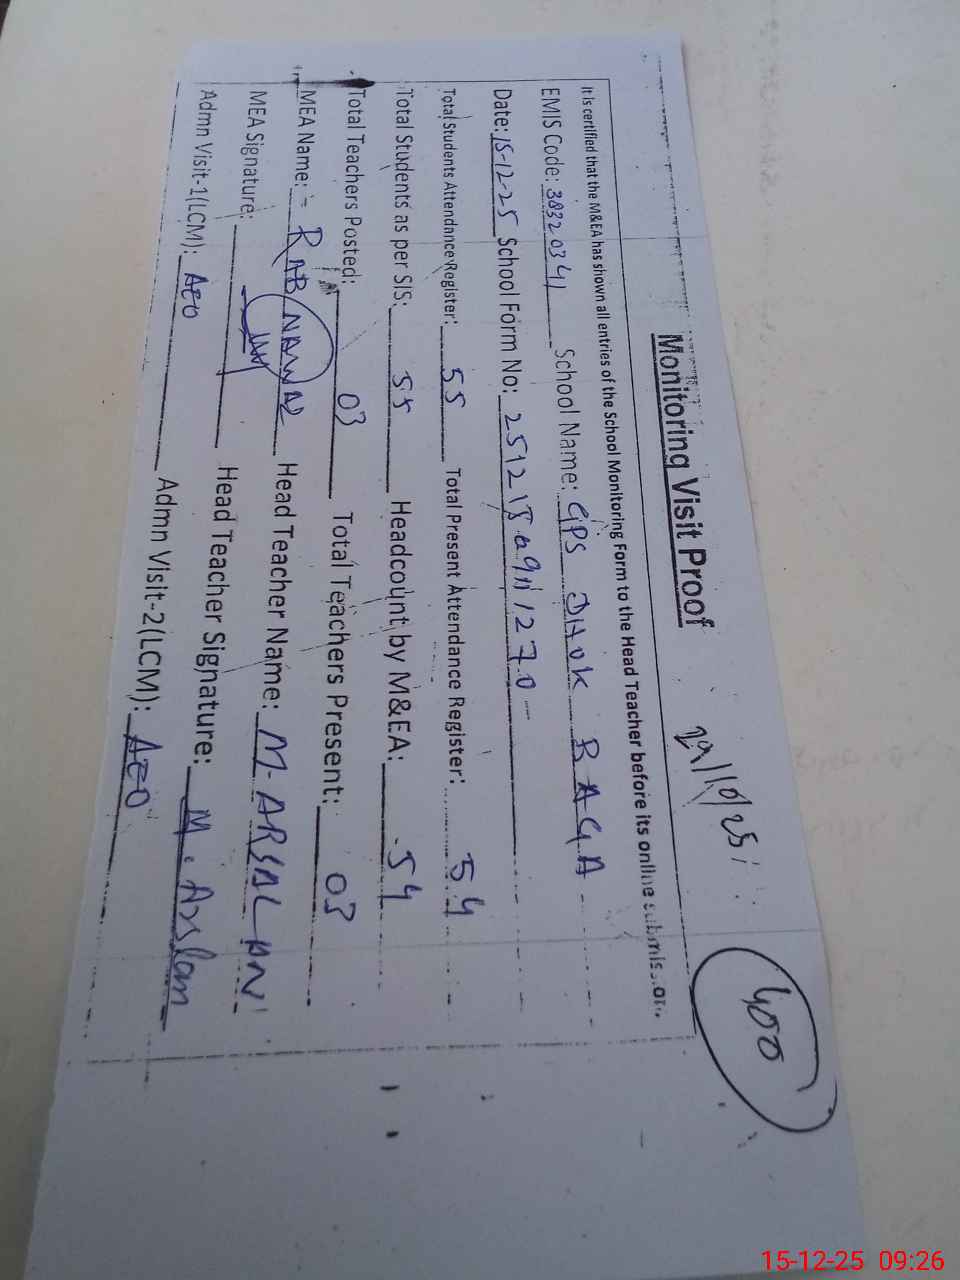 Monitoring Visit Proof
400
It is certified that the M&EA has shown all entries of the School Monitoring Form to the Head Teacher before its online submission.
EMIS Code: 38320341 School Name: GPS DHOK RAGA
Date: 15-12-25 School Form No:
Total Students Attendance Register: 55 Total Present Attendance Register: 54
Total Students as per SIS: 55 Headcount by M&EA: 54
Total Teachers Posted: 03 Total Teachers Present: 03
MEA Name:- RAB NAWAZ Head Teacher Name: M. ARSALAN
MEA Signature: Head Teacher Signature: M. Arslan
Admn Visit-1(LCM): AEO Admn Visit-2(LCM): AEO
15-12-25 09:26